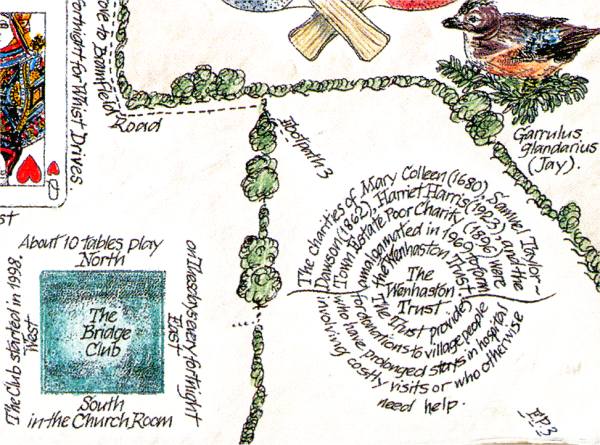 Fortnight for Whist Drives
to Bramfield
Road
Q
Footpath 3
Garrulus
glandarius
(Jay).
The charities of Mary Colleen (1680), Samuel Taylor~
Dawson (1862), Harriet Harris (1923), and the
Town Estate Poor Charity (1896) were
amalgamated in 1969 to form
the Wenhaston Trust.
The
Wenhaston
Trust
The Trust provides
donations to village people
who have prolonged stays in hospital
involving costly visits or who otherwise
need help.
About 10 tables play
North
The Club started in 1998.
West
The
Bridge
Club
East
on Tuesdays every fortnight
South
in the Church Room